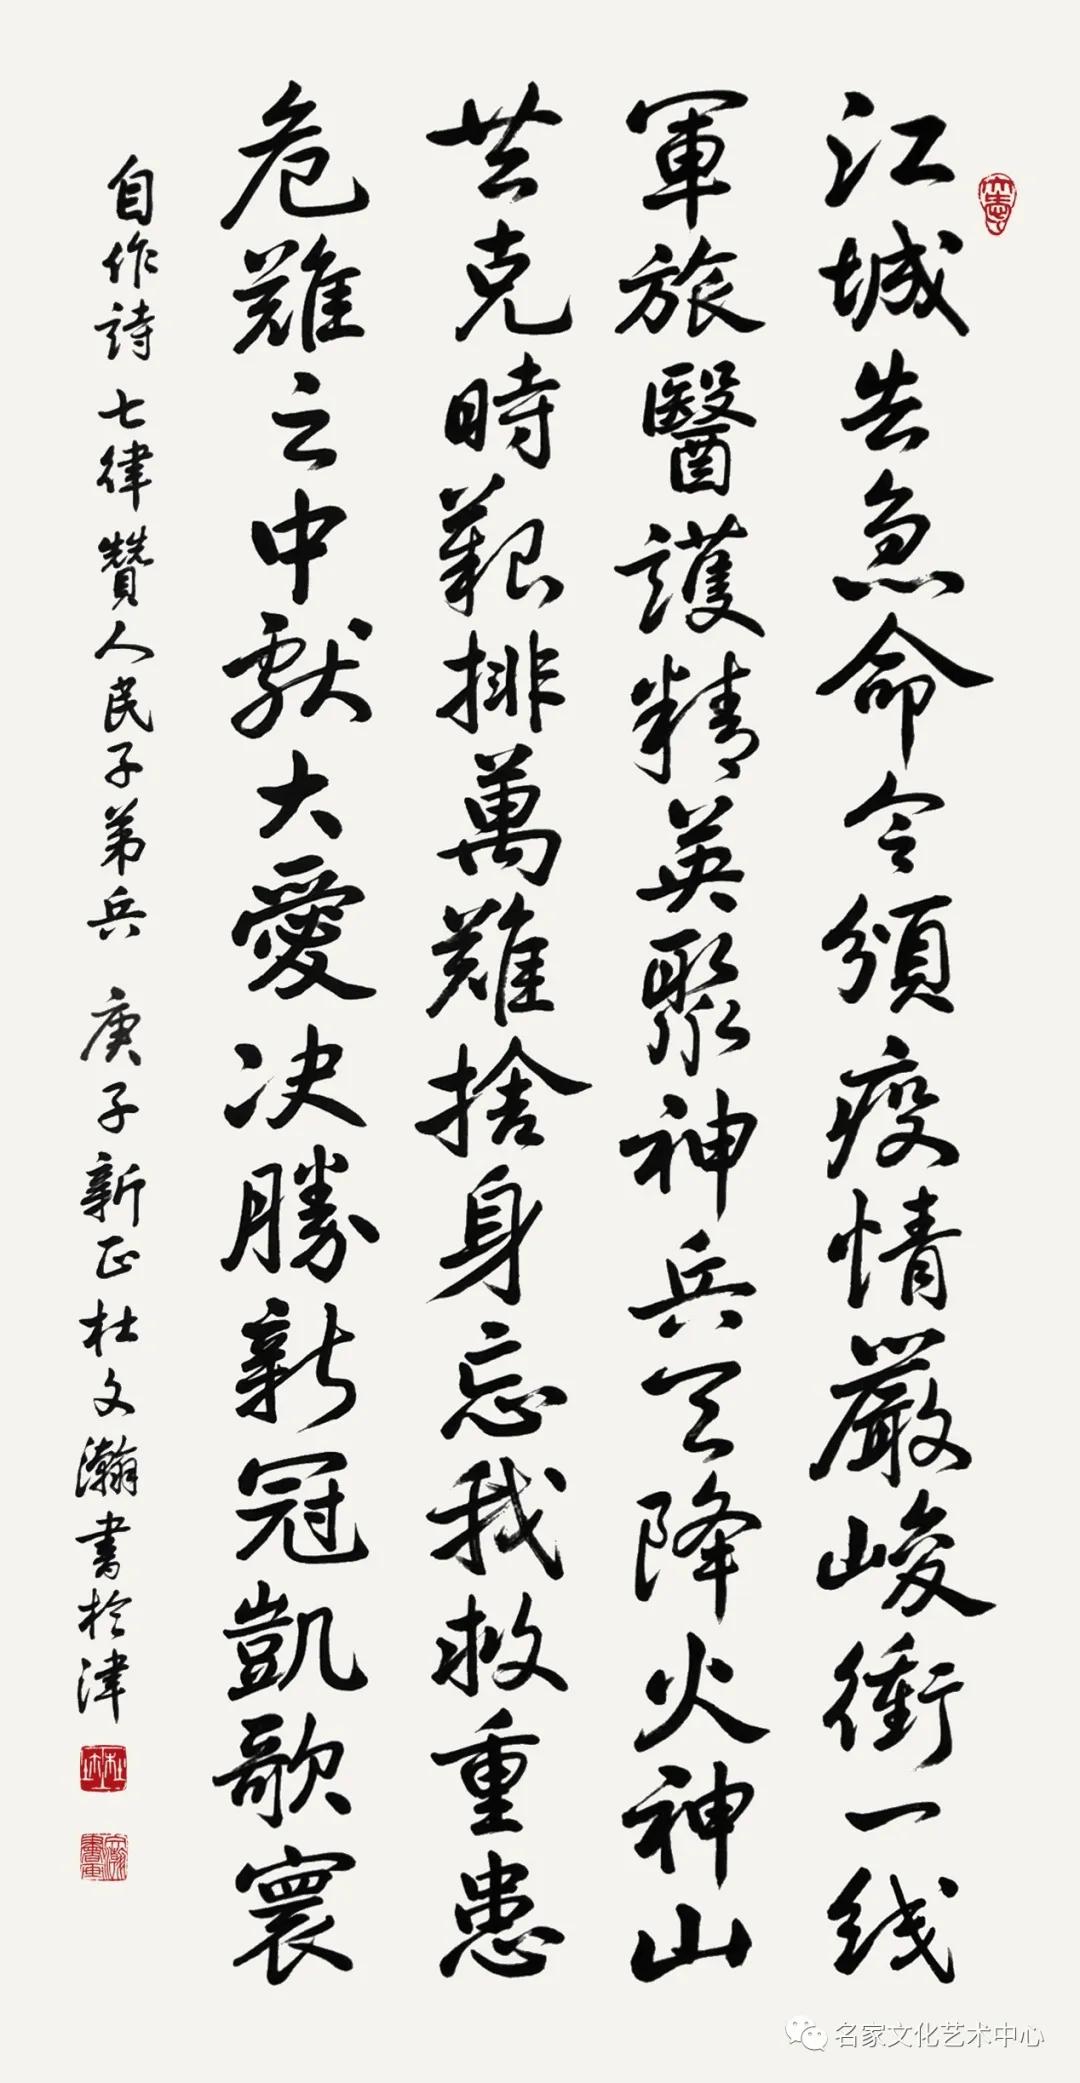 江城告急命令頒疫情嚴峻衝一线
軍旅醫護精英聚神兵天降火神山
共克時艱排萬難捨身忘我救重患
危難之中獻大愛决勝新冠凱歌寰
自作詩七律贊人民子弟兵 庚子新正杜文瀚書於津
名家文化艺术中心